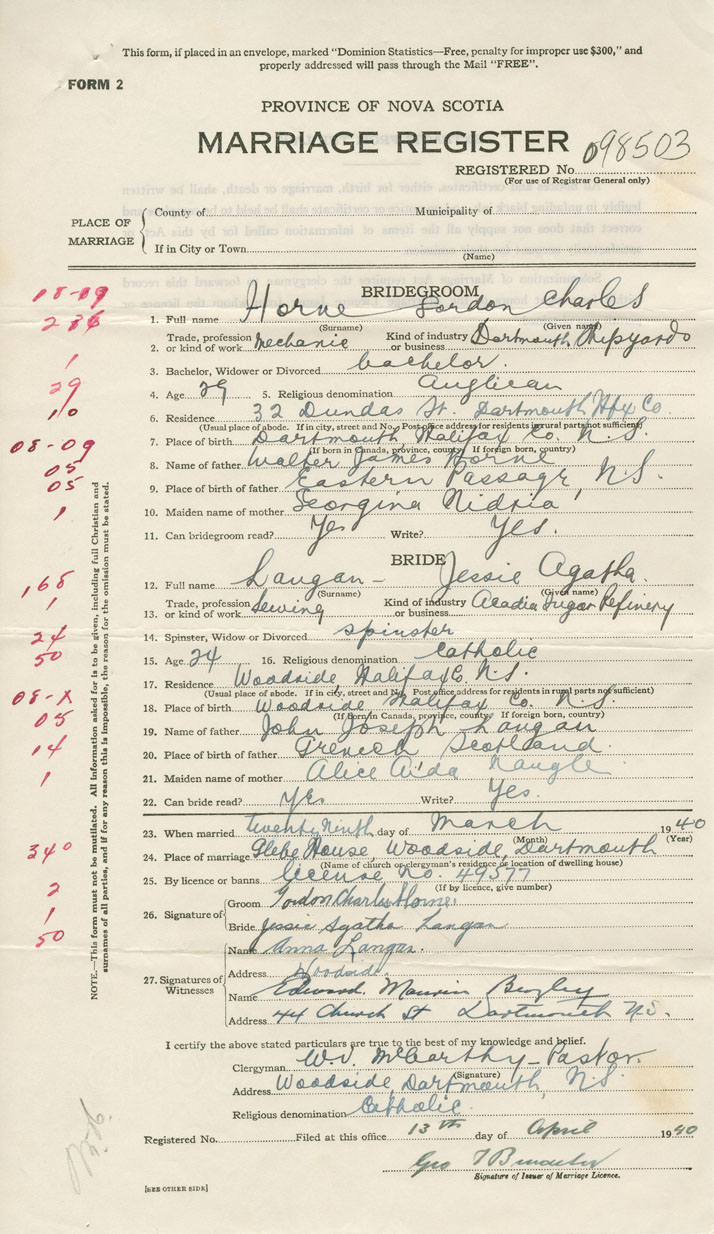 This form, if placed in an envelope, marked "Dominion Statistics—Free, penalty for improper use $300," and
properly addressed will pass through the Mail "FREE".
FORM 2
PROVINCE OF NOVA SCOTIA
MARRIAGE REGISTER
REGISTERED No. 098503
(For use of Registrar General only)
PLACE OF MARRIAGE
County of Municipality of
If in City or Town
(Name)
BRIDEGROOM
18-09
1. Full name Horne Gordon Charles
(Surname) (Given name)
2. Trade, profession or kind of work Mechanic Kind of industry or business Dartmouth Shipyards
1
3. Bachelor, Widower or Divorced bachelor.
29
4. Age 29 5. Religious denomination Anglican
10
6. Residence 32 Dundas St. Dartmouth Hfx Co.
(Usual place of abode. If in city, street and No. Post office address for residents in rural parts not sufficient)
08-09
7. Place of birth Dartmouth Halifax Co. N.S.
(If born in Canada, province, county If foreign born, country)
05
8. Name of father Walter James Horne
05
9. Place of birth of father Eastern Passage, N.S.
1
10. Maiden name of mother Georgina
11. Can bridegroom read? Yes Write? Yes.
BRIDE
168
12. Full name Langan- Jessie Agatha.
(Surname) (Given name)
1
13. Trade, profession or kind of work Sewing Kind of industry or business Acadia Sugar Refinery
24
14. Spinster, Widow or Divorced spinster
50
15. Age 24 16. Religious denomination Catholic
17. Residence Woodside, Halifax Co. N.S.
(Usual place of abode. If in city, street and No. Post office address for residents in rural parts not sufficient)
08-X
18. Place of birth Woodside Halifax Co. N.S.
(If Born in Canada, province, county If foreign born, country)
05
19. Name of father John Joseph Langan
14
20. Place of birth of father Scotland.
1
21. Maiden name of mother Alice Aida Naugle
22. Can bride read? Yes Write? Yes.
23. When married twenty ninth day of March 1940
(Month) (Year)
340
24. Place of marriage Glebe House, Woodside, Dartmouth
(Name of church or clergyman's residence or location of dwelling house)
25. By licence or banns license No. 49577
(If by licence, give number)
2
1
50
26. Signature of Groom Gordon Charles Horne.
Bride Jessie Agatha Langan
27. Signatures of Witnesses
Name Anna Langan.
Address Woodside.
Name Edward
Address 44 Church St Dartmouth N.S.
NOTE.—This form must not be mutilated. All information asked for is to be given, including full Christian and
surnames of all parties, and if for any reason this is impossible, the reason for the omission must be stated.
I certify the above stated particulars are true to the best of my knowledge and belief.
Clergyman W.J. McCarthy - Pastor.
(Signature)
Address Woodside, Dartmouth, N.S.
Religious denomination Catholic.
Registered No. Filed at this office 13th day of April 1940
Geo
Signature of Issuer of Marriage Licence.
[SEE OTHER SIDE]